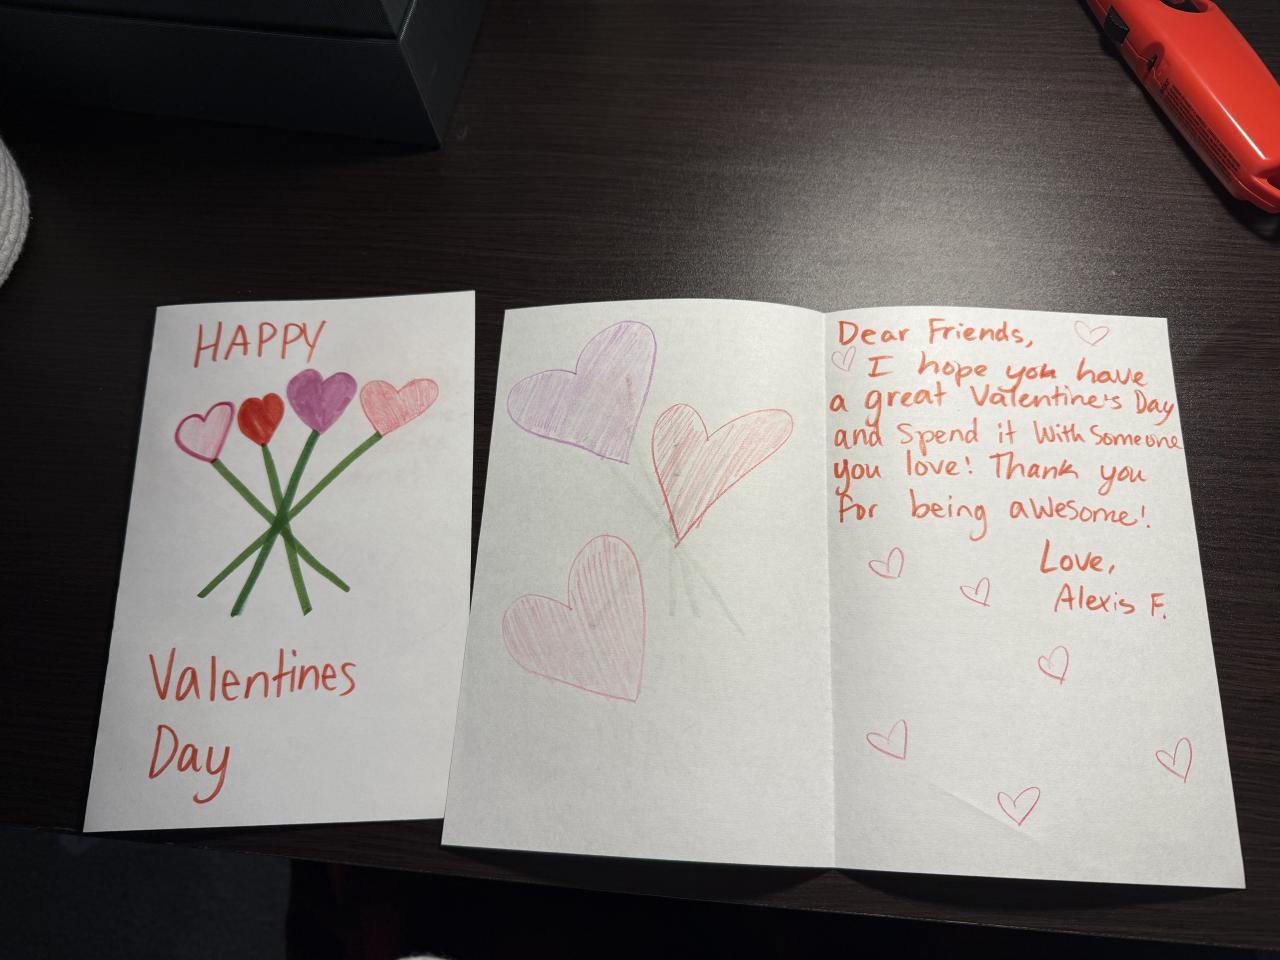 HAPPY
Valentines
Day
Dear Friends,
I hope you have
a great Valentine's Day
and spend it with someone
you love! Thank you
for being awesome!
Love,
Alexis F.